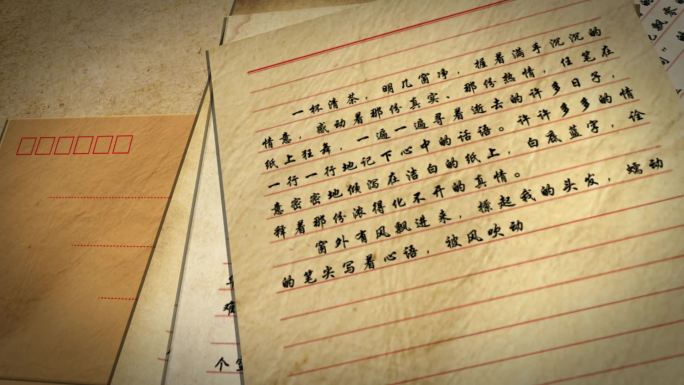 一杯清茶，明几窗净，握着满手沉沉的
情意，感动着那份真实、那份热情，任笔在
纸上狂舞，一遍一遍寻着逝去的许多日子，
一行一行地记下心中的话语。许许多多的情
意密密地倾泻在洁白的纸上，白底蓝字，诠
释着那份浓得化不开的真情。
窗外有风飘进来，撩起我的头发，蠕动
的笔尖写着心语，被风吹动
难
个